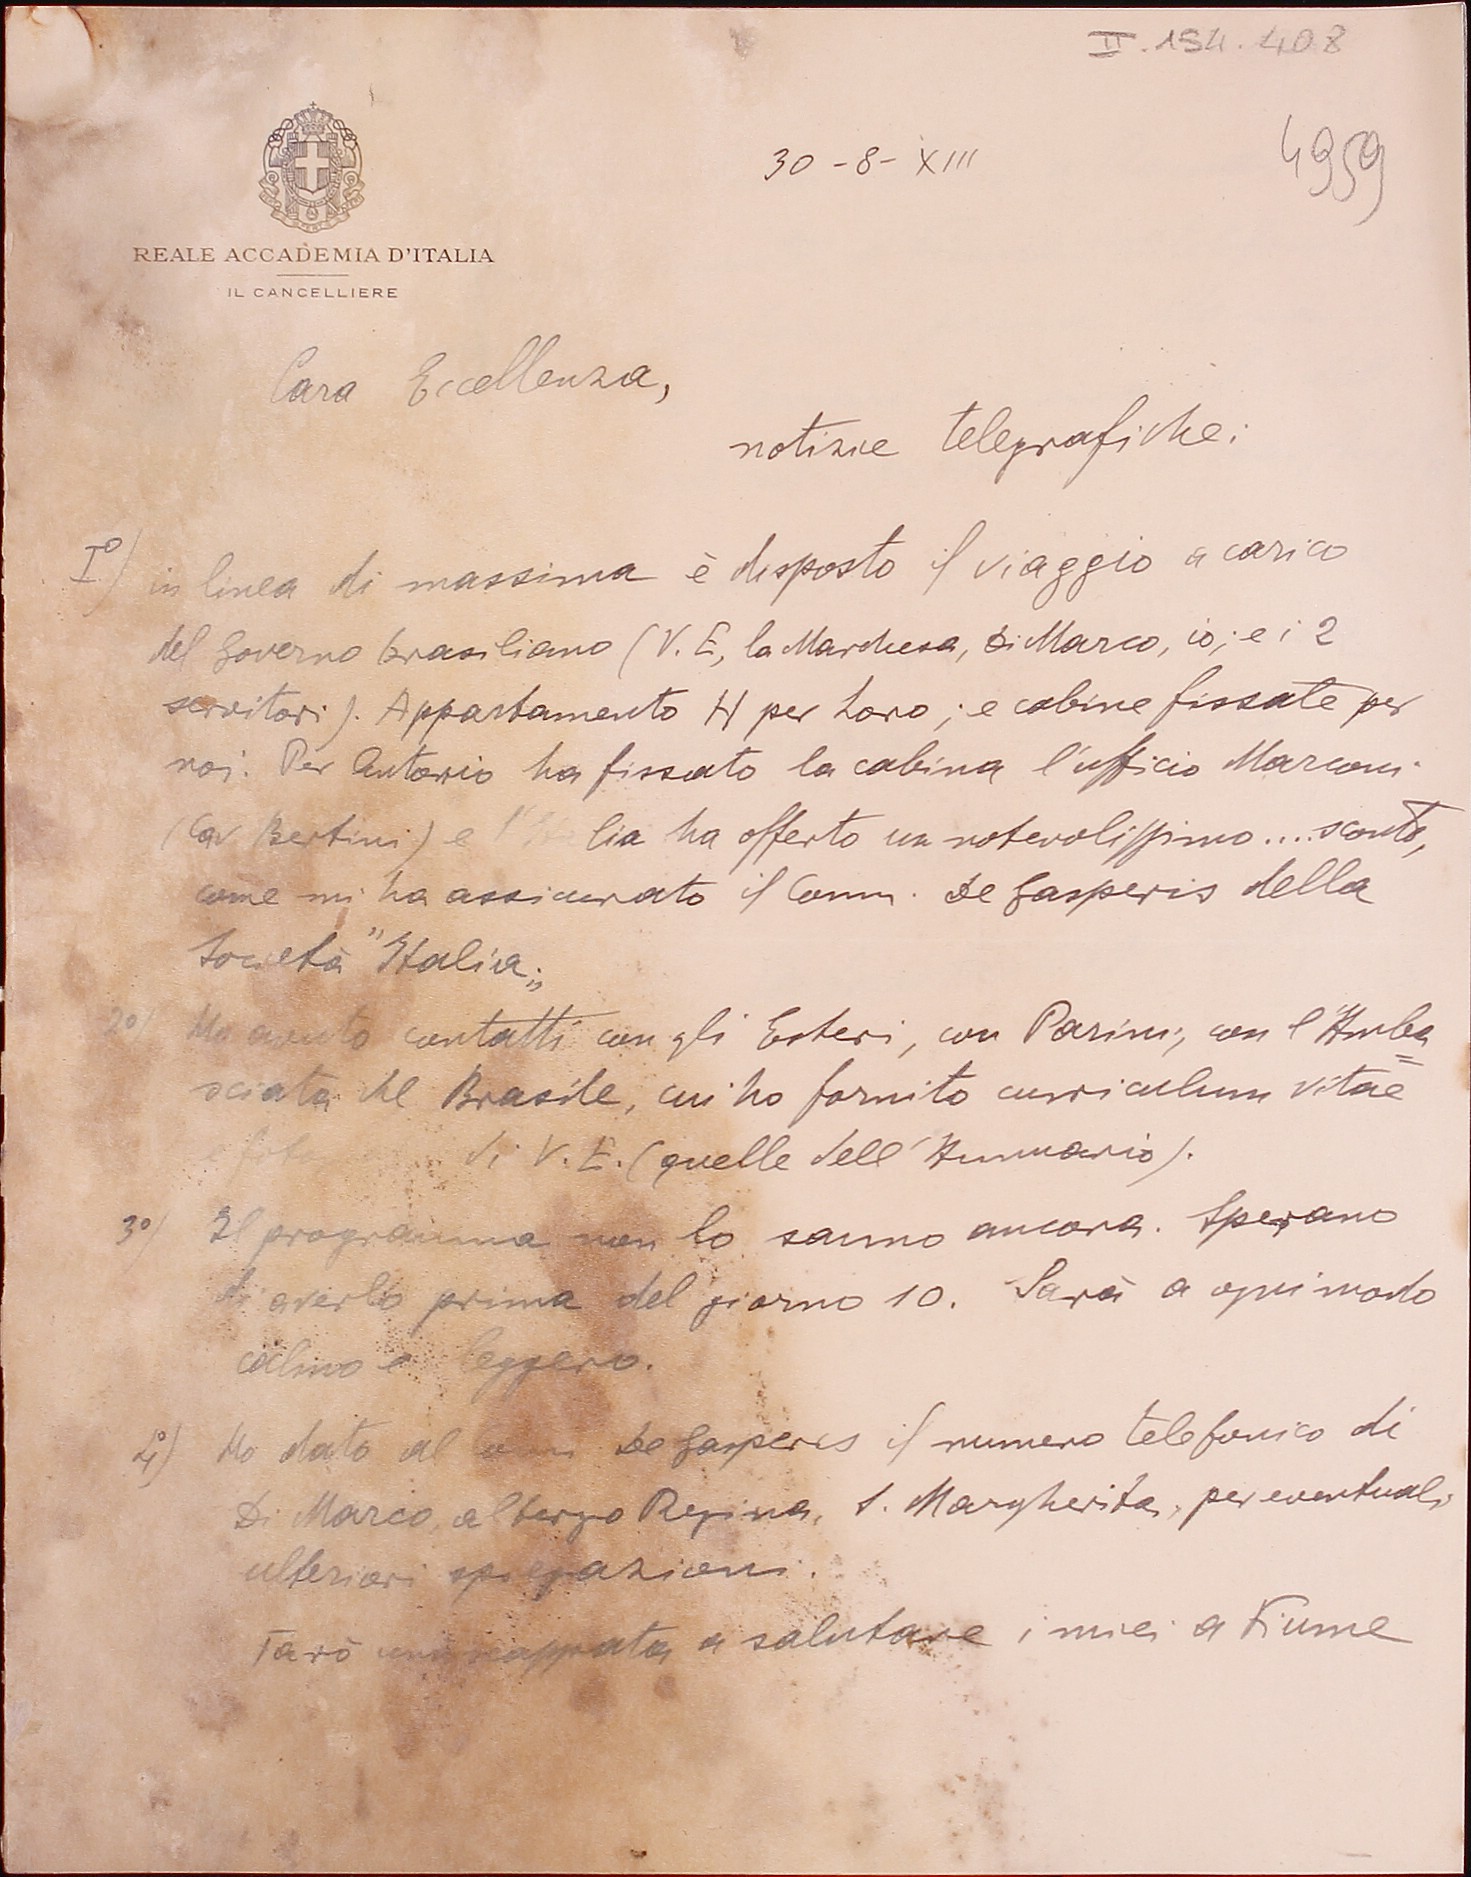 II.194.408
4959
30-8-XIII
REALE ACCADEMIA D'ITALIA
IL CANCELLIERE
Cara Eccellenza,
notizie telegrafiche:
I°/ in linea di massima è disposto il viaggio a carico
del Governo brasiliano (V. E, la Marchesa, Di Marco, io; e i 2
servitori). Appartamento H per Loro; e cabine fissate per
noi. Per Antonio ha fissato la cabina l'ufficio Marconi
(Cav Bertini) e lia ha offerto un notevolissimo.... sconto,
come mi ha assicurato il Comm. De Gasperis della
Società "Italia„
2°/ Ho avuto contatti con gli Esteri, con Parini, con l'Amba
sciata del Brasile, cui ho fornito curriculum vitae
e di V. E. (quelle dell'Annuario).
3°/ Il programma non lo sanno ancora. Sperano
di averlo prima del giorno 10. Sarà a ogni modo
calmo e leggero.
4°) Ho dato al Comm De Gasperis il numero telefonico di
Di Marco, albergo Regina, S. Margherita, per eventuali
ulteriori spiegazioni.
Farò una scappata a salutare i miei a Fiume